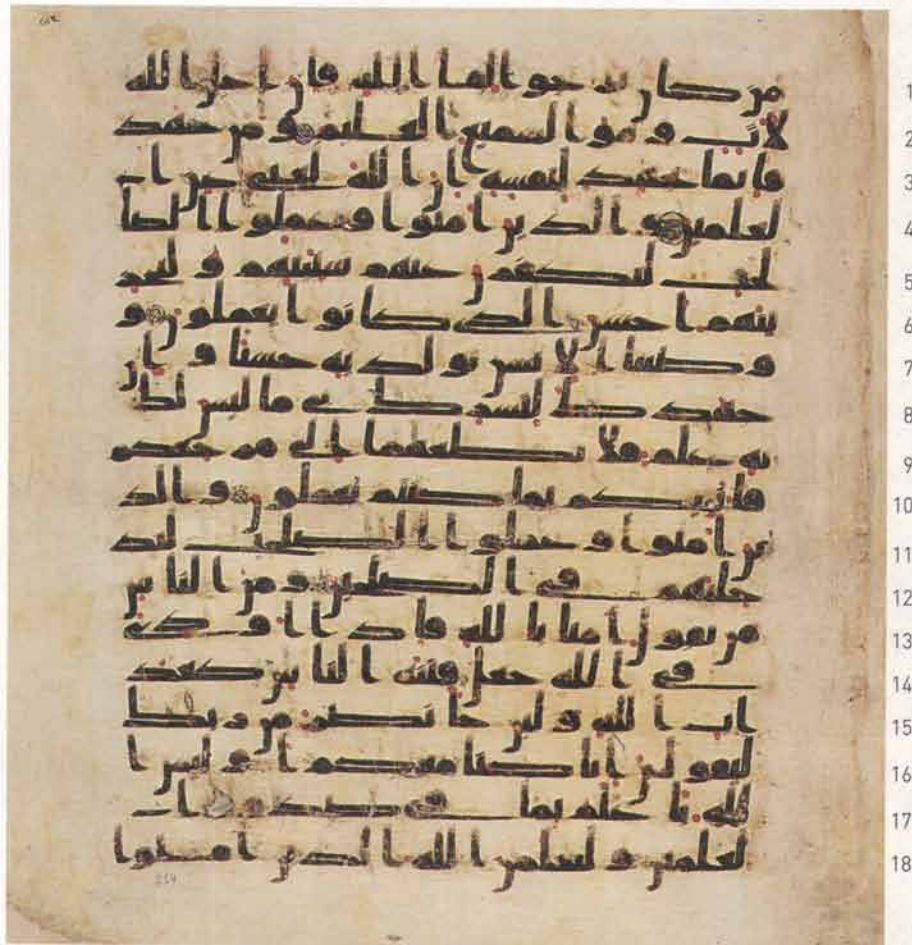 من كان يرجوا لقا الله فان اجل الله 1
لات و هو السميع العليم و من جهد 2
فانما يجهد لنفسه ان الله لغني عن ا 3
لعلمين والذين امنوا و عملوا الصا 4
لحت لنكفرن عنهم سيتهم و لنجز 5
ينهم احسن الذي كانوا يعملون و 6
وصينا الانسن بولديه حسنا و ان 7
جهدك لتشرك بي ما ليس لك 8
به علم فلا تطعهما الي مرجعكم 9
فانبيكم بما كنتم تعملون والذ 10
ين امنوا و عملوا الصلحت لند 11
خلنهم في الصلحين و من الناس 12
من يقول امنا بالله فاذا اوذي 13
في الله جعل فتنه الناس كعذ 14
اب الله و لين جا نصر من ربك 15
ليقولن انا كنا معكم او ليس ا 16
لله باعلم بما في صدور ا 17
لعلمين و ليعلمن الله الذين امنوا 18
254